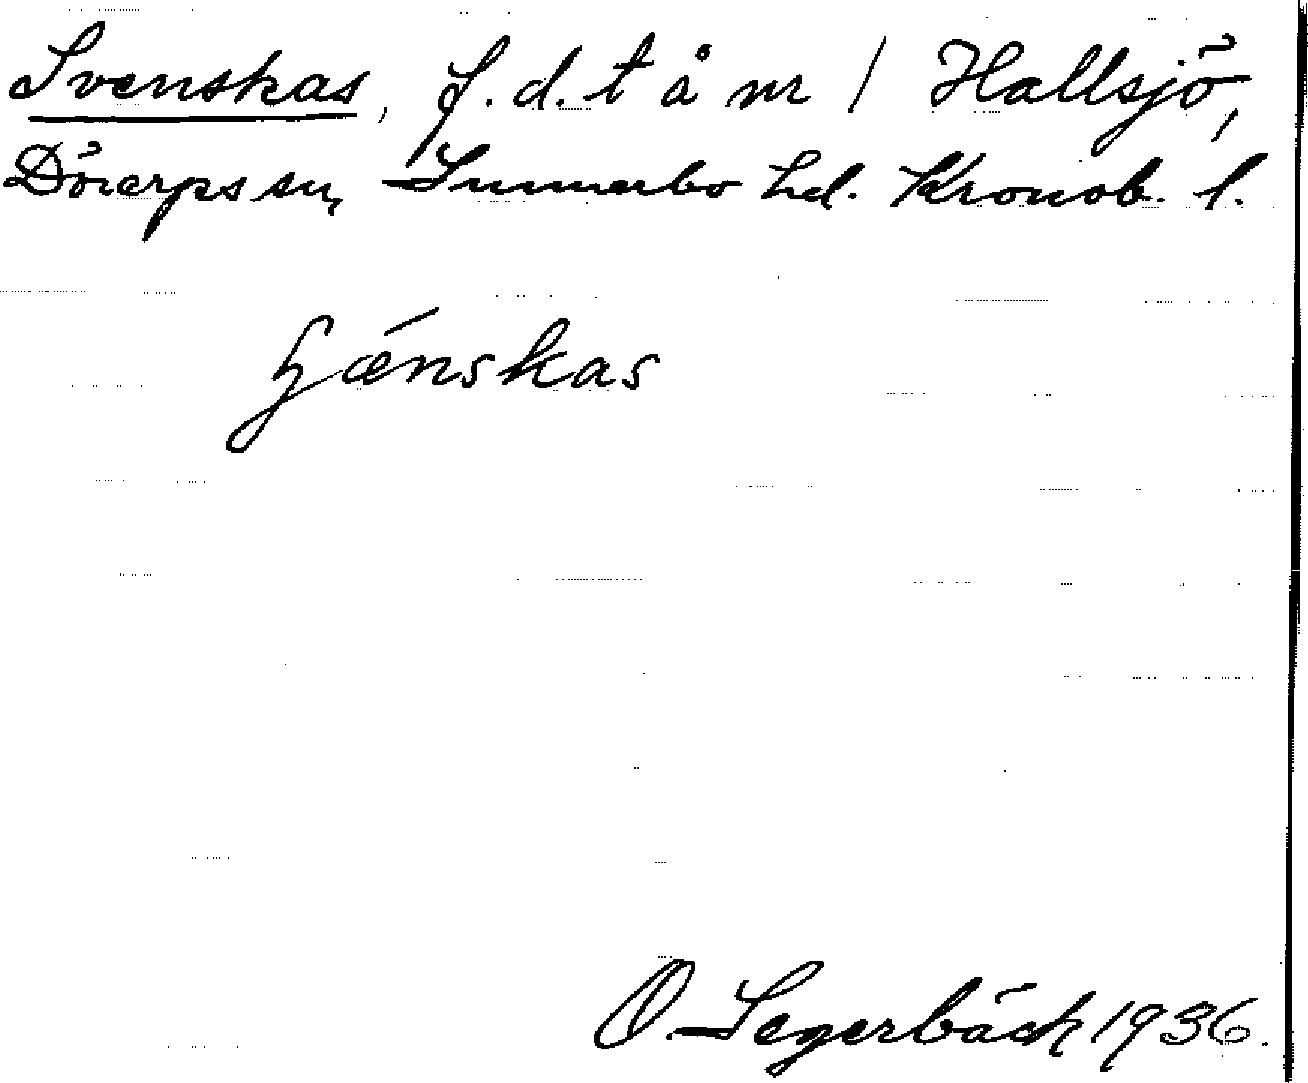 Svenskas, f.d. t å nr 1 Hallsjö,
Dörarps sn, Sunnerbo hd. Kronob. l.
O Segerbäck 1936.